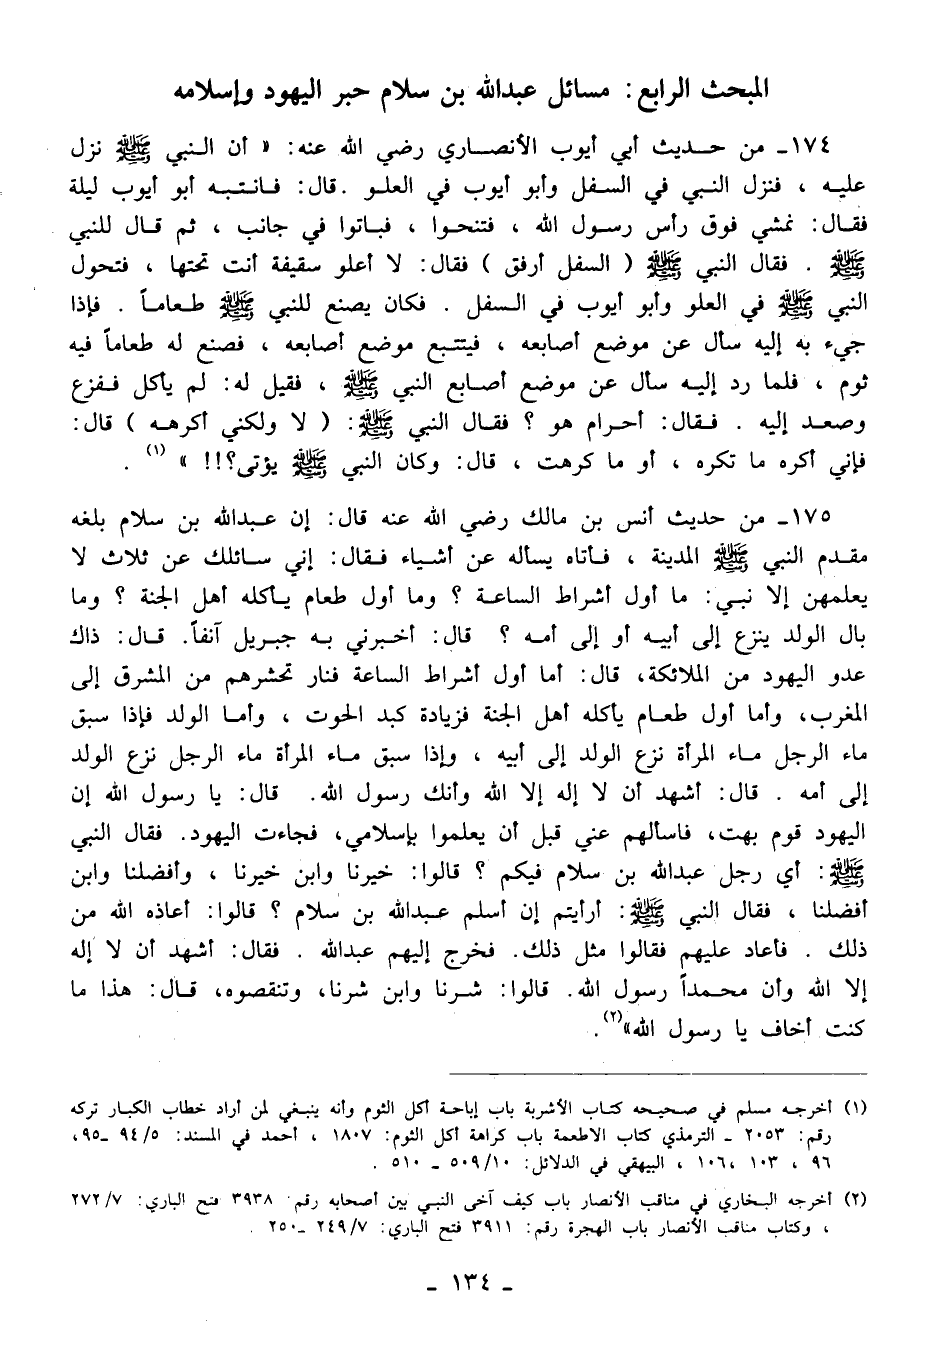 المبحث الرابع: مسائل عبدالله بن سلام حبر اليهود وإسلامه
١٧٤ـ من حديث أبي أيوب الأنصاري رضي الله عنه: « أن النبي ﷺ نزل
عليه ، فنزل النبي في السفل وأبو أيوب في العلو .قال: فانتبه أبو أيوب ليلة
فقال: نمشي فوق رأس رسول الله ، فتنحوا ، فباتوا في جانب ، ثم قال للنبي
ﷺ . فقال النبي ﷺ ( السفل أرفق ) فقال: لا أعلو سقيفة أنت تحتها ، فتحول
النبي ﷺ في العلو وأبو أيوب في السفل . فكان يصنع للنبي ﷺ طعاماً . فإذا
جيء به إليه سأل عن موضع أصابعه ، فيتتبع موضع أصابعه ، فصنع له طعاماً فيه
ثوم ، فلما رد إليه سأل عن موضع أصابع النبي ﷺ ، فقيل له: لم يأكل ففزع
وصعد إليه . فقال: أحرام هو ؟ فقال النبي ﷺ: ( لا ولكني أكرهه ) قال:
فإني أكره ما تكره ، أو ما كرهت ، قال: وكان النبي ﷺ يؤتى؟!! » (١) .
١٧٥ـ من حديث أنس بن مالك رضي الله عنه قال: إن عبدالله بن سلام بلغه
مقدم النبي ﷺ المدينة ، فأتاه يسأله عن أشياء فقال: إني سائلك عن ثلاث لا
يعلمهن إلا نبي: ما أول أشراط الساعة ؟ وما أول طعام يأكله أهل الجنة ؟ وما
بال الولد ينزع إلى أبيه أو إلى أمه ؟ قال: أخبرني به جبريل آنفاً. قال: ذاك
عدو اليهود من الملائكة، قال: أما أول أشراط الساعة فنار تحشرهم من المشرق إلى
المغرب، وأما أول طعام يأكله أهل الجنة فزيادة كبد الحوت ، وأما الولد فإذا سبق
ماء الرجل ماء المرأة نزع الولد إلى أبيه ، وإذا سبق ماء المرأة ماء الرجل نزع الولد
إلى أمه . قال: أشهد أن لا إله إلا الله وأنك رسول الله. قال: يا رسول الله إن
اليهود قوم بهت، فاسألهم عني قبل أن يعلموا بإسلامي، فجاءت اليهود. فقال النبي
ﷺ: أي رجل عبدالله بن سلام فيكم ؟ قالوا: خيرنا وابن خيرنا ، وأفضلنا وابن
أفضلنا ، فقال النبي ﷺ: أرأيتم إن أسلم عبدالله بن سلام ؟ قالوا: أعاذه الله من
ذلك . فأعاد عليهم فقالوا مثل ذلك. فخرج إليهم عبدالله . فقال: أشهد أن لا إله
إلا الله وأن محمداً رسول الله. قالوا: شرنا وابن شرنا، وتنقصوه، قال: هذا ما
كنت أخاف يا رسول الله»(٢).
(١) أخرجه مسلم في صحيحه كتاب الأشربة باب إباحة أكل الثوم وأنه ينبغي لمن أراد خطاب الكبار تركه
رقم: ٢٠٥٣ ـ الترمذي كتاب الاطعمة باب كراهة أكل الثوم: ١٨٠٧ ، أحمد في المسند: ٩٤/٥ ـ٩٥،
٩٦ ، ١٠٣ ،١٠٦ ، البيهقي في الدلائل: ٥٠٩/١٠ ـ ٥١٠ .
(٢) أخرجه البخاري في مناقب الأنصار باب كيف آخى النبي بين أصحابه رقم ٣٩٣٨ فتح الباري: ٢٧٢/٧
، وكتاب مناقب الأنصار باب الهجرة رقم: ٣٩١١ فتح الباري: ٢٤٩/٧ ـ٢٥٠ .
ـ ١٣٤ ـ